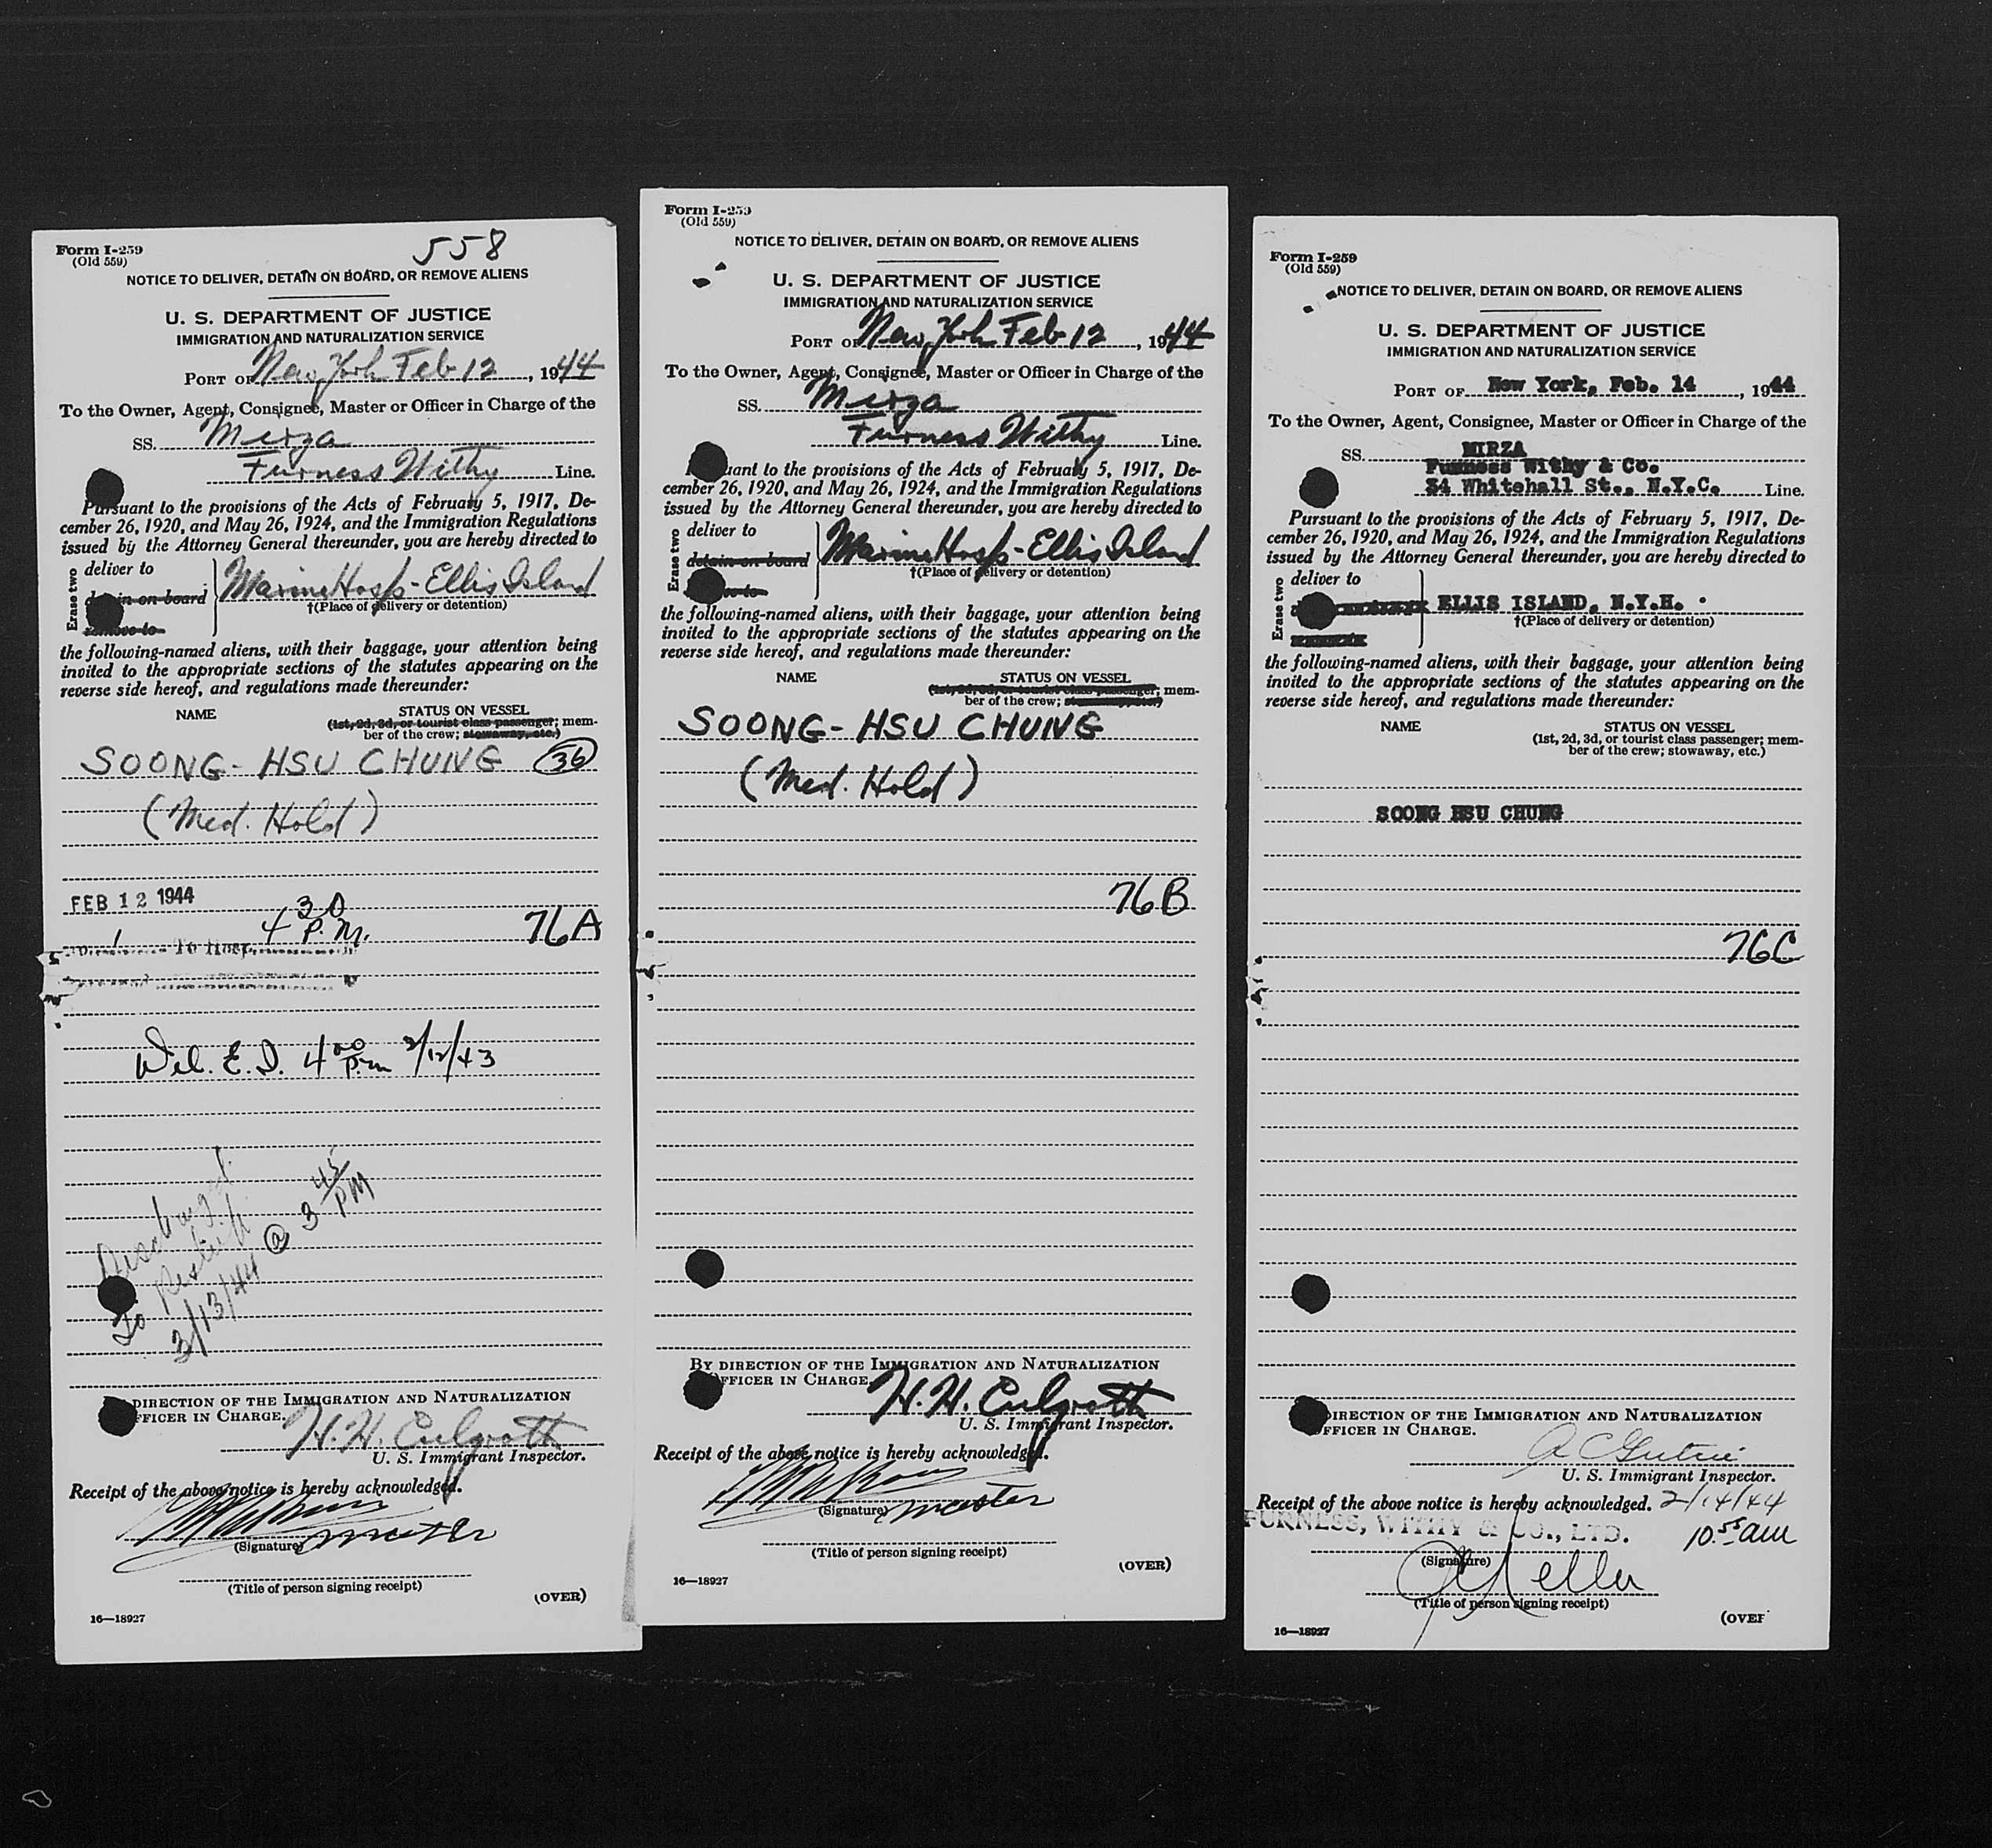 Form I-259
(Old 559)
558
NOTICE TO DELIVER, DETAIN ON BOARD, OR REMOVE ALIENS
U. S. DEPARTMENT OF JUSTICE
IMMIGRATION AND NATURALIZATION SERVICE
PORT OF New York Feb 12, 1944
To the Owner, Agent, Consignee, Master or Officer in Charge of the
SS. Mirza
Furness Withy Line.
Pursuant to the provisions of the Acts of February 5, 1917, De-
cember 26, 1920, and May 26, 1924, and the Immigration Regulations
issued by the Attorney General thereunder, you are hereby directed to
Erase two
deliver to
in on board
remove to
Marine Hosp - Ellis Island
†(Place of delivery or detention)
the following-named aliens, with their baggage, your attention being
invited to the appropriate sections of the statutes appearing on the
reverse side hereof, and regulations made thereunder:
NAME STATUS ON VESSEL
(1st, 2d, 3d, or tourist class passenger; mem-
ber of the crew; stowaway, etc.)
SOONG - HSU CHUNG 36
(Med. Hold)
FEB 12 1944
4 30 P.M. 76A
1 To Hosp.
Del. E.I. 4 00 p.m 2/12/43
Discharged
To
3/13/44 @ 3 45 PM
DIRECTION OF THE IMMIGRATION AND NATURALIZATION
FFICER IN CHARGE.
H. H. Culgrath
U. S. Immigrant Inspector.
Receipt of the above notice is hereby acknowledged.
master
(Signature)
(Title of person signing receipt)
(OVER)
16—18927
Form I-259
(Old 559)
NOTICE TO DELIVER, DETAIN ON BOARD, OR REMOVE ALIENS
U. S. DEPARTMENT OF JUSTICE
IMMIGRATION AND NATURALIZATION SERVICE
PORT OF New York Feb 12, 1944
To the Owner, Agent, Consignee, Master or Officer in Charge of the
SS. Mirza
Furness Withy Line.
uant to the provisions of the Acts of February 5, 1917, De-
cember 26, 1920, and May 26, 1924, and the Immigration Regulations
issued by the Attorney General thereunder, you are hereby directed to
Erase two
deliver to
detain on board
Marine Hosp - Ellis Island
†(Place of delivery or detention)
the following-named aliens, with their baggage, your attention being
invited to the appropriate sections of the statutes appearing on the
reverse side hereof, and regulations made thereunder:
NAME STATUS ON VESSEL
(1st, 2d, 3d, or tourist class passenger; mem-
ber of the crew; stowaway, etc.)
SOONG - HSU CHUNG
(Med. Hold)
76B
BY DIRECTION OF THE IMMIGRATION AND NATURALIZATION
FFICER IN CHARGE.
H. H. Culgrath
U. S. Immigrant Inspector.
Receipt of the above notice is hereby acknowledged.
master
(Signature)
(Title of person signing receipt)
(OVER)
16—18927
Form I-259
(Old 559)
NOTICE TO DELIVER, DETAIN ON BOARD, OR REMOVE ALIENS
U. S. DEPARTMENT OF JUSTICE
IMMIGRATION AND NATURALIZATION SERVICE
PORT OF New York, Feb. 14, 1944
To the Owner, Agent, Consignee, Master or Officer in Charge of the
SS. MIRZA
Furness Withy & Co.
34 Whitehall St., N.Y.C. Line.
Pursuant to the provisions of the Acts of February 5, 1917, De-
cember 26, 1920, and May 26, 1924, and the Immigration Regulations
issued by the Attorney General thereunder, you are hereby directed to
Erase two
deliver to
ELLIS ISLAND, N.Y.H.
†(Place of delivery or detention)
the following-named aliens, with their baggage, your attention being
invited to the appropriate sections of the statutes appearing on the
reverse side hereof, and regulations made thereunder:
NAME STATUS ON VESSEL
(1st, 2d, 3d, or tourist class passenger; mem-
ber of the crew; stowaway, etc.)
SOONG HSU CHUNG
76C
DIRECTION OF THE IMMIGRATION AND NATURALIZATION
FFICER IN CHARGE.
U. S. Immigrant Inspector.
Receipt of the above notice is hereby acknowledged. 2/14/44
FURNESS, WITHY & CO., LTD. 10 55 am
(Signature)
(Title of person signing receipt)
(OVER
16—18927